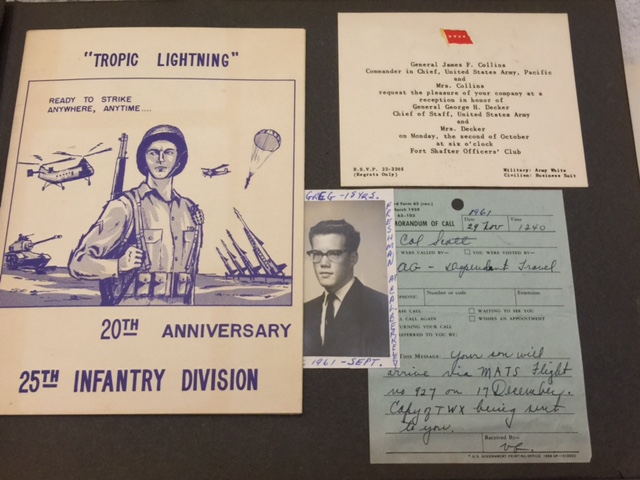 "TROPIC LIGHTNING"
READY TO STRIKE
ANYWHERE, ANYTIME....
20TH ANNIVERSARY
25TH INFANTRY DIVISION
General James F. Collins
Commander in Chief, United States Army, Pacific
and
Mrs. Collins
request the pleasure of your company at a
reception in honor of
General George H. Decker
Chief of Staff, United States Army
and
Mrs. Decker
on Monday, the second of October
at six o'clock
Fort Shafter Officers' Club
R.S.V.P. 33-2308
(Regrets Only)
Military: Army White
Civilian: Business Suit
GREG - 18 YRS.
FRESHMAN AT CAL BERKELEY
1961 - SEPT.
rd Form 63 (rev.)
March 1959
63-105
MORANDUM OF CALL
1961
Date
29 Nov
Time
1240
Col Scott
WERE CALLED BY—
YOU WERE VISITED BY—
AG - Dependant Travel
PHONE:
Number or code
Extension
ASE CALL
WAITING TO SEE YOU
LL CALL AGAIN
WISHES AN APPOINTMENT
TURNING YOUR CALL
FERRED TO YOU BY:
THIS MESSAGE:
Your son will
arrive via MATS Flight
no 927 on 17 December.
Copy of TWX being sent
to you.
Received By—
U.S. GOVERNMENT PRINTING OFFICE